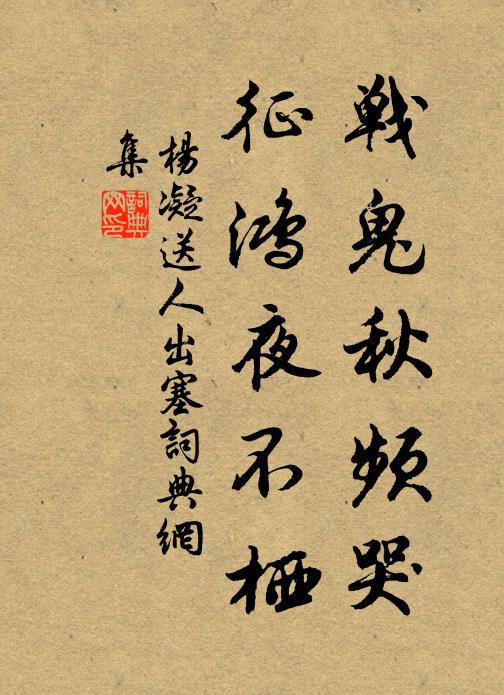 戰鬼秋頻哭
征鴻夜不栖
楊凝送人出塞詞典網
集
詞典网印